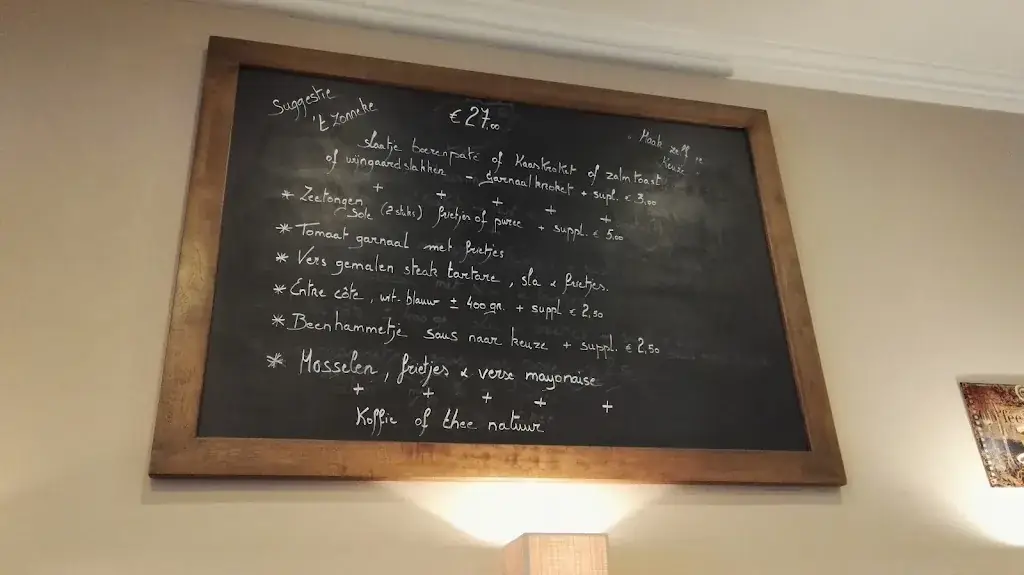 Suggestie
't Zonneke
€ 27,00
"Maak zelf je
keuze"
slaatje boerenpaté of Kaaskroket of zalmtoast
of wijngaardslakken - Garnaalkroket + supl. € 3,00
+ + + + +
* Zeetongen
Sole (2 stuks) frietjes of puree + suppl. € 5,00
* Tomaat garnaal met frietjes
* Vers gemalen steak tartare, sla & frietjes.
* Entre côte, wit-blauw ± 400 gr. + suppl € 2,50
* Beenhammetje saus naar keuze + suppl. € 2,50
* Mosselen, frietjes & verse mayonaise
+ + + + +
Koffie of thee natuur